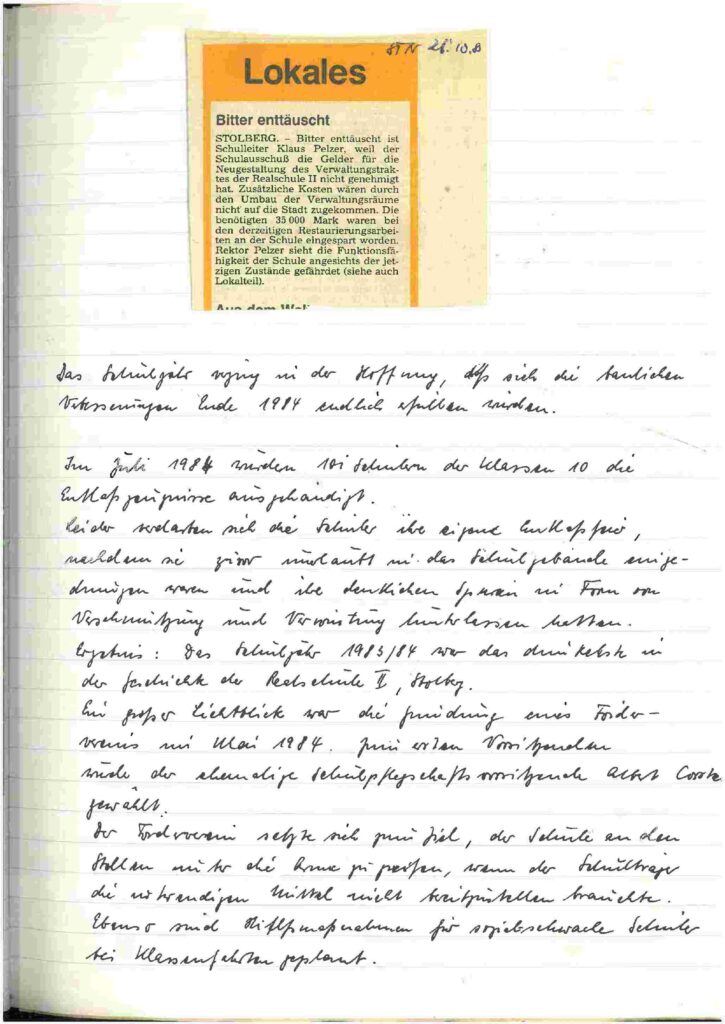 STN 28.10.8
Lokales
Bitter enttäuscht
STOLBERG. – Bitter enttäuscht ist
Schulleiter Klaus Pelzer, weil der
Schulausschuß die Gelder für die
Neugestaltung des Verwaltungstrak-
tes der Realschule II nicht genehmigt
hat. Zusätzliche Kosten wären durch
den Umbau der Verwaltungsräume
nicht auf die Stadt zugekommen. Die
benötigten 35 000 Mark waren bei
den derzeitigen Restaurierungsarbei-
ten an der Schule eingespart worden.
Rektor Pelzer sieht die Funktionsfä-
higkeit der Schule angesichts der jet-
zigen Zustände gefährdet (siehe auch
Lokalteil).
Das Schuljahr verging in der Hoffnung, daß sich die baulichen
Verbesserungen Ende 1984 endlich erfüllen würden.
Im Juli 1984 wurden 101 Schülern der Klassen 10 die
Entlaßzeugnisse ausgehändigt.
Leider verdarben sich die Schüler ihre eigene Entlaßfeier,
nachdem sie zuvor unerlaubt in das Schulgebäude einge-
drungen waren und ihre deutlichen Spuren in Form von
Verschmutzung und Verwüstung hinterlassen hatten.
Ergebnis: Das Schuljahr 1983/84 war das dunkelste in
der Geschichte der Realschule II, Stolberg.
Ein großer Lichtblick war die Gründung eines Förder-
vereins im Mai 1984. Zum ersten Vorsitzenden
wurde der ehemalige Schulpflegschaftsvorsitzende Albert
gewählt.
Der Förderverein setzte sich zum Ziel, der Schule an den
Stellen unter die Arme zu greifen, wenn der Schulträger
die notwendigen Mittel nicht bereitzustellen brauchte.
Ebenso sind Hilfsmaßnahmen für sozialschwache Schüler
bei Klassenfahrten geplant.